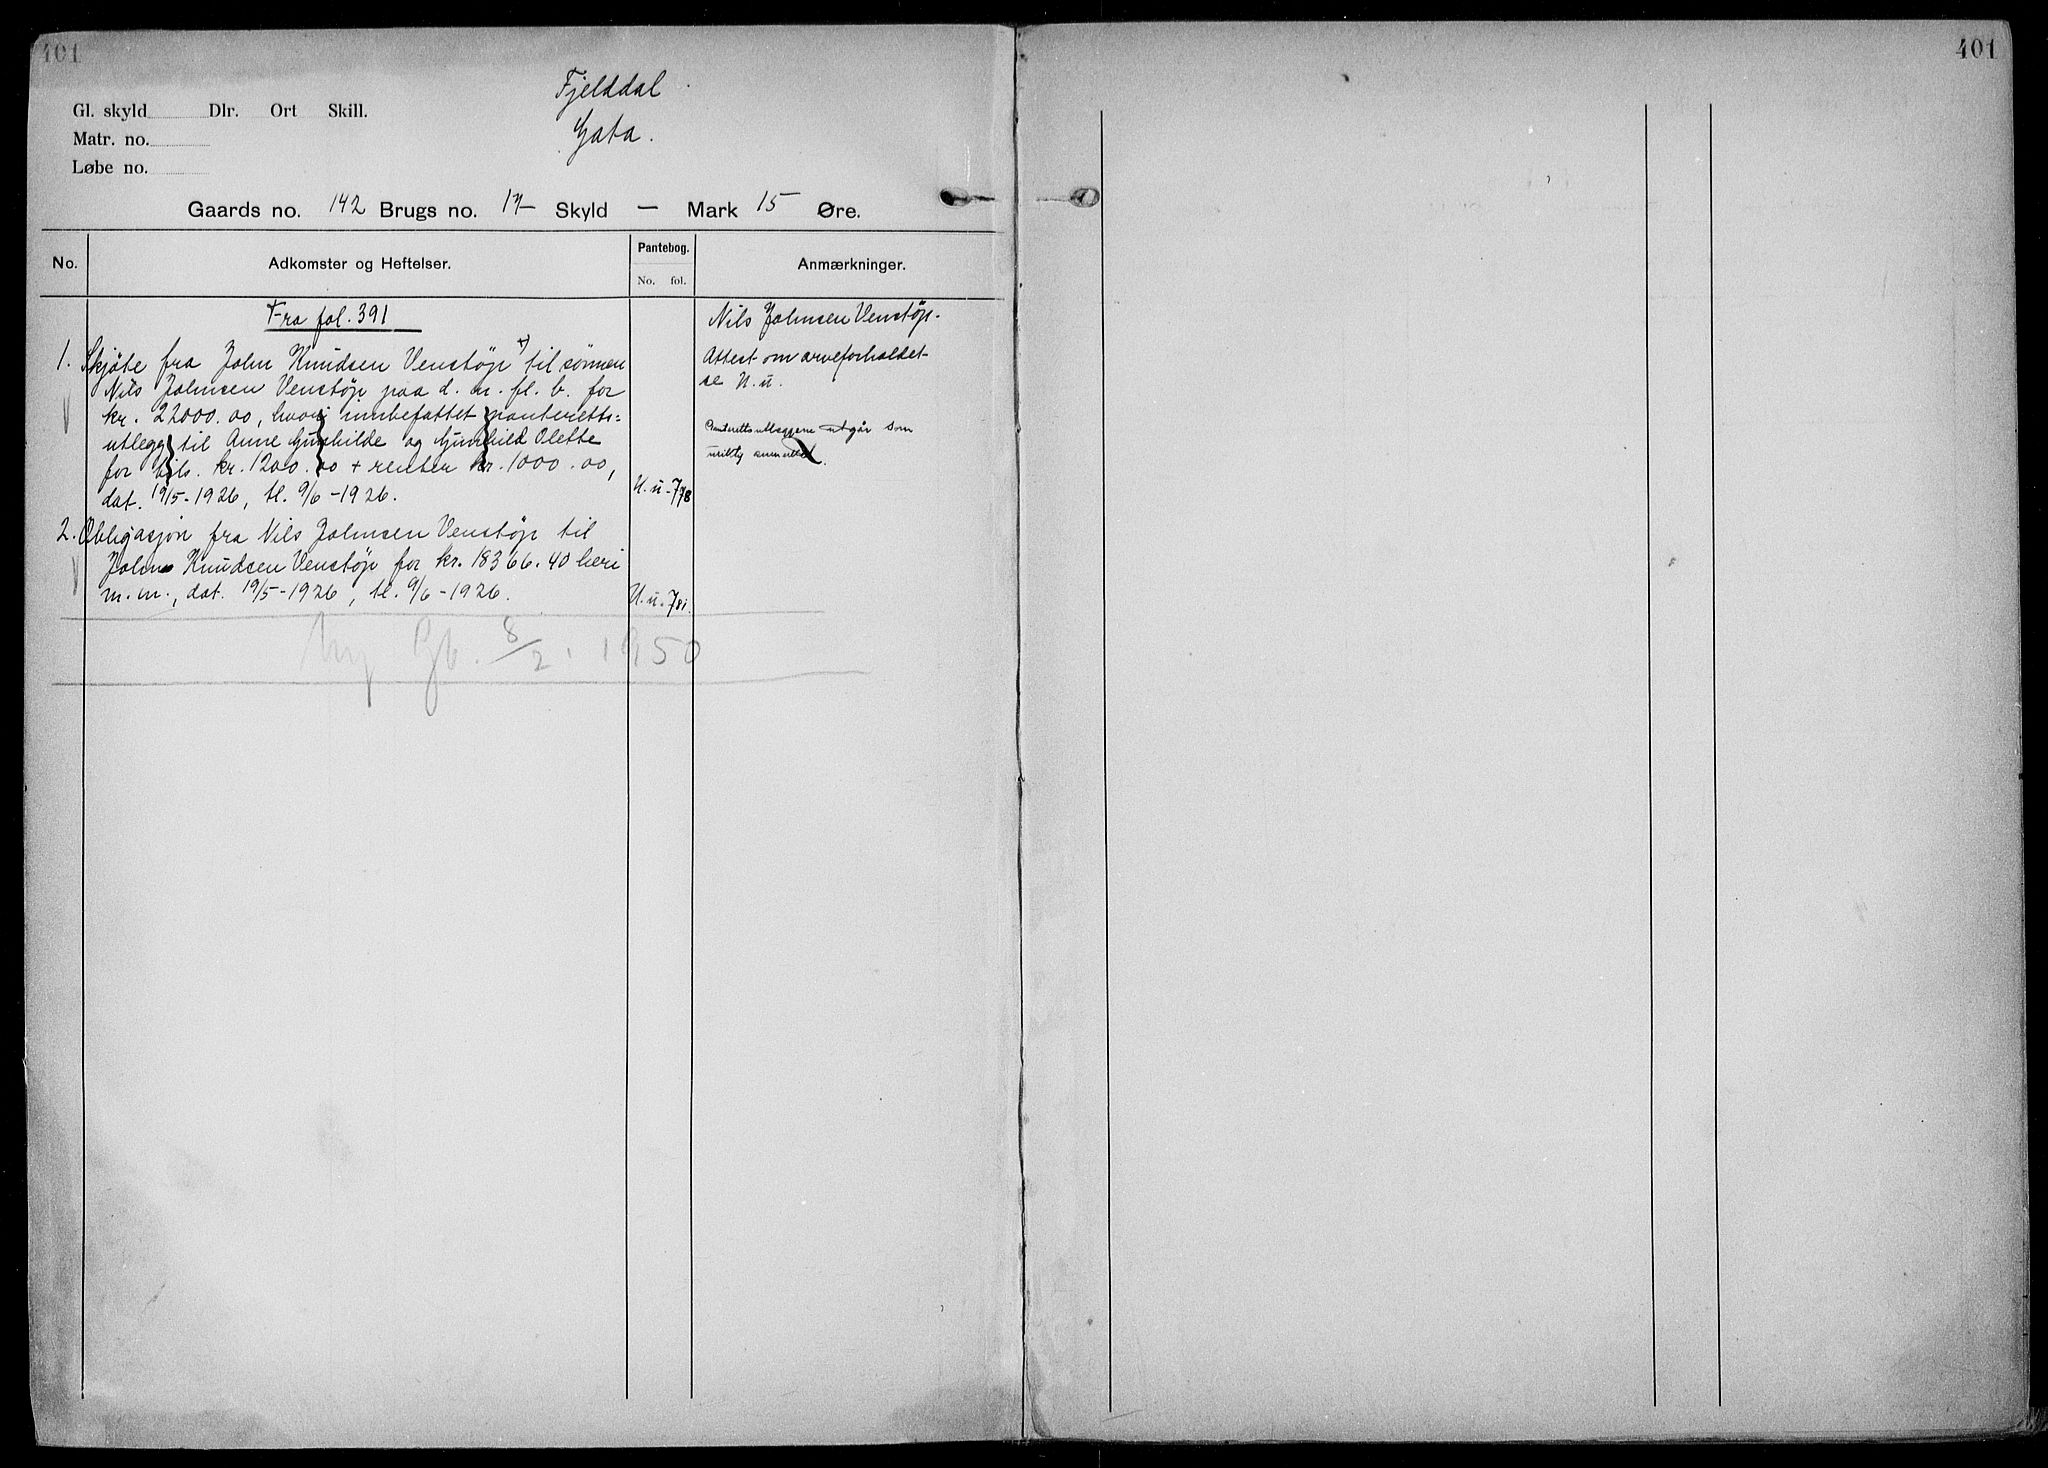 401
Fjelddal
Gata.
Gl. skyld Dlr. Ort Skill.
Matr. no.
Løbe no.
Gaards no. 142 Brugs no. 17 Skyld — Mark 15 Øre.
No. Adkomster og Heftelser. Pantebog. No. fol. Anmærkninger.
Fra fol. 391
1. Skjøte fra John Knudsen Venstøp +) til sønnen
Nils Johnsen Venstøp paa d. m. fl. b. for
kr. 22000.00, hvori innbefattet panteretts-
utlegg til Anne Gunhilde og Gunhild Olette
for tils. kr. 1200.00 + renter kr. 1000.00,
dat. 19/5-1926, tl. 9/6-1926. N. u-778
2. Obligasjon fra Nils Johnsen Venstøp til
John Knudsen Venstøp for kr. 18366.40 heri
m. m., dat. 19/5-1926, tl. 9/6-1926. N. u.-781.
Ny Gb. 8/2. 1950
Nils Johnsen Venstøp.
Attest om arveforholdet
se N. u.
Panterettsutleggene utgår som
uriktig anmerket.
401